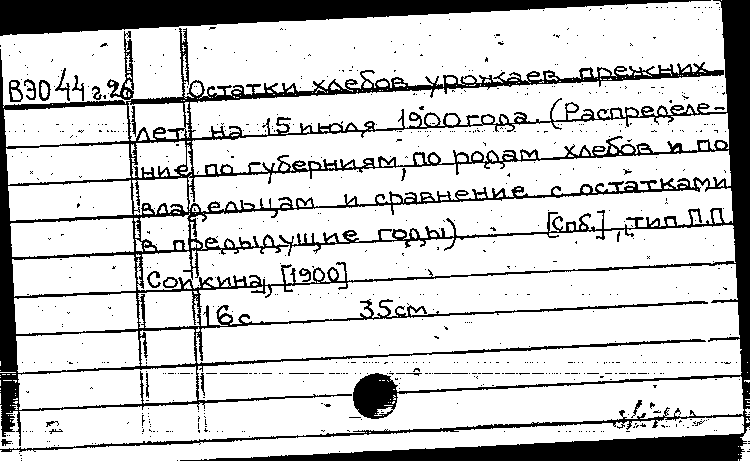 ВЭО 44 г.26 Остатки хлебов урожаев прежних
лет на 15 июля 1900 года. (Распределе-
ние по губерниям, по родам хлебов и по
владельцам и сравнение с остатками
в предыдущие годы) [Спб.], тип. П.П.
Сойкина, [1900]
16 с. 35 см.